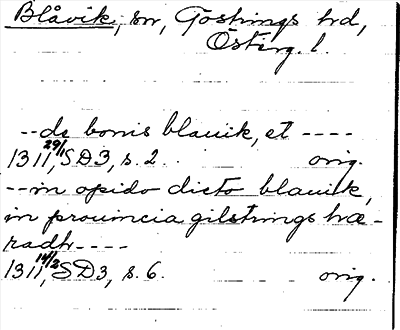 Blåvik, sn, Göstrings hd,
Östırg. l.
--de bonis blauik, et ----
1311 29/1, SD3, s. 2. orig.
--in opido dicto blauik,
in prouincia gilstrings hæ-
radh----
1311 14/2, SD3, s. 6. orig.